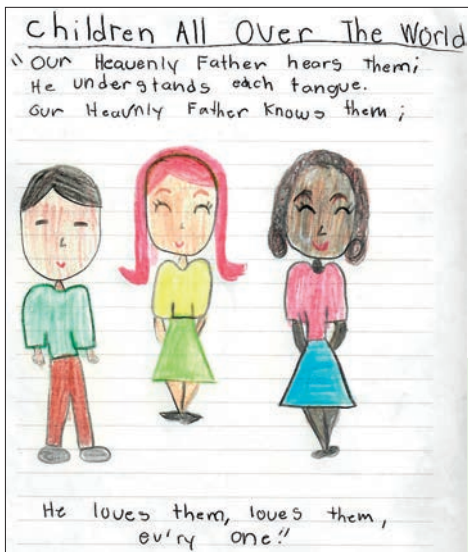 Children All Over The World
"Our Heavenly Father hears them;
He understands each tangue.
Our Heavnly Father knows them;
He loves them, loves them,
ev'ry one!"